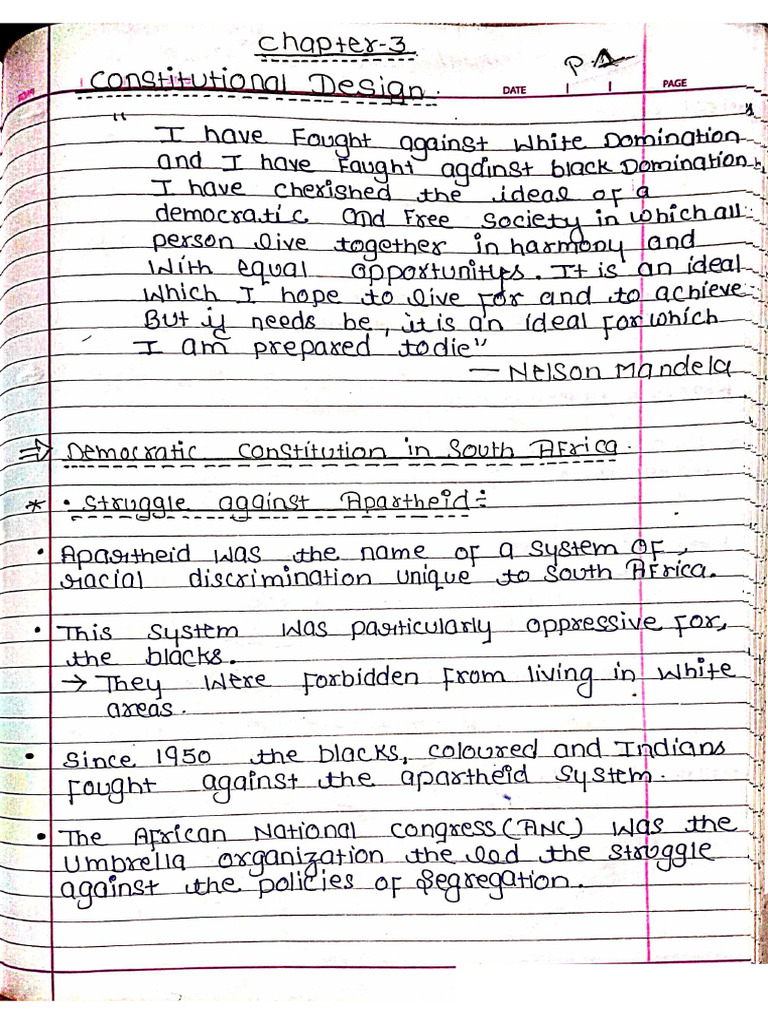 Chapter-3
Constitutional Design.
DATE
PAGE
"I have Fought against White Domination
and I have Faught against black Domination,
I have cherished the ideal of a
democratic and Free society in which all
person live together in harmony and
With equal opportunitys. It is an ideal
Which I hope to live for and to achieve
But if needs be, it is an ideal for which
I am prepared to die"
— Nelson Mandela
⇒ Democratic Constitution in South Africa.
* • Struggle against Apartheid:
• Apartheid was the name of a system of
racial discrimination unique to South Africa.
• This system was particularly oppressive for,
the blacks.
→ They were forbidden from living in White
areas.
• Since 1950 the blacks, coloured and Indians
Fought against the apartheid system.
• The African National Congress (ANC) was the
Umbrella organization the led the struggle
against the policies of Segregation.